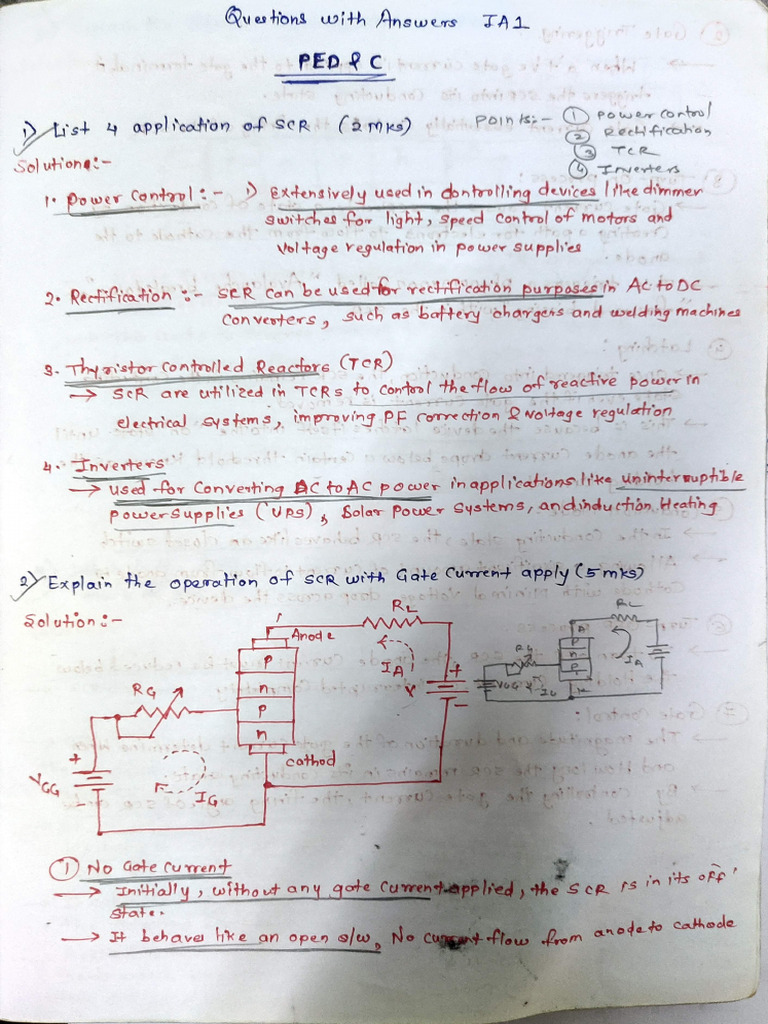 Questions with Answers IA1
PED & C
1) List 4 application of SCR (2 mks)
Points:- ① Power control
② Rectification
③ TCR
④ Inverters
Solution:-
1. Power Control :- 1) Extensively used in controlling devices like dimmer
switches for light, speed control of motors and
voltage regulation in power supplies
2. Rectification :- SCR can be used for rectification purposes in AC to DC
Converters, such as battery chargers and welding machines
3. Thyristor controlled Reactors (TCR)
→ SCR are utilized in TCRs to control the flow of reactive power in
electrical systems, improving PF correction & voltage regulation
4. Inverters
→ used for converting DC to AC power in applications like uninterruptible
power supplies (UPS), Solar Power Systems, and induction Heating
2) Explain the operation of SCR with Gate Current apply (5 mks)
Solution :-
RL
Anode
P
n
P
n
cathod
IA
V
+
-
RG
+
VGG
IG
RL
A
P
n
P
K
RG
IA
VGG
IG
① No Gate Current
→ Initially, without any gate current applied, the SCR is in its 'off'
state.
→ It behaves like an open s/w, No current flow from anode to cathode